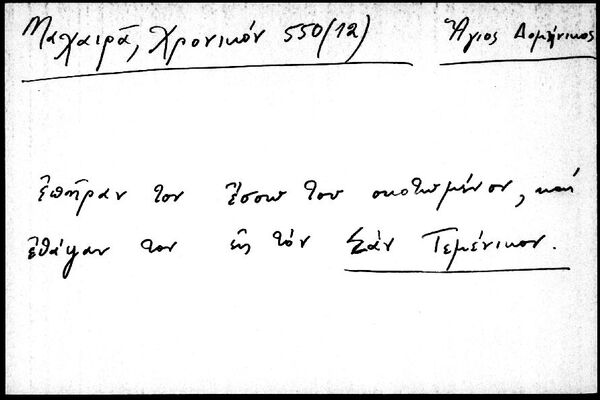 Μαχαιρᾶ, Χρονικόν 550(12) Ἅγιος Δομένικος
ἐπῆραν τον ἔσσω του σκοτωμένον, καὶ
ἐθάψαν τον εἰς τὸν Σὰν Τεμένικον.